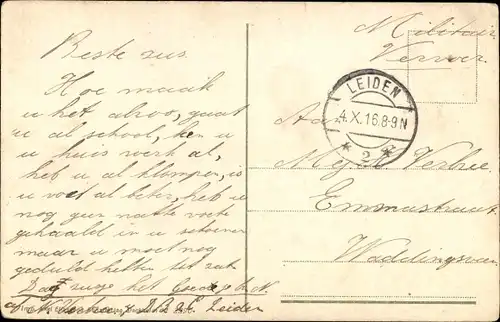 Beste zus.
Hoe maak
u het alzoo, gaat
u al school, ken u
u huis werk al,
heb u al klompen, is
u voet al beter, heb u
nog geen natte voete
gehaald in u schoenen
maar u moet nog
geduld hebben tot zat
Dag zusje het
Leiden
Militair
Vervoer.
LEIDEN
4.X.16.8-9N
2
Aan
Mej.
Emmastraat
Waddingsveen